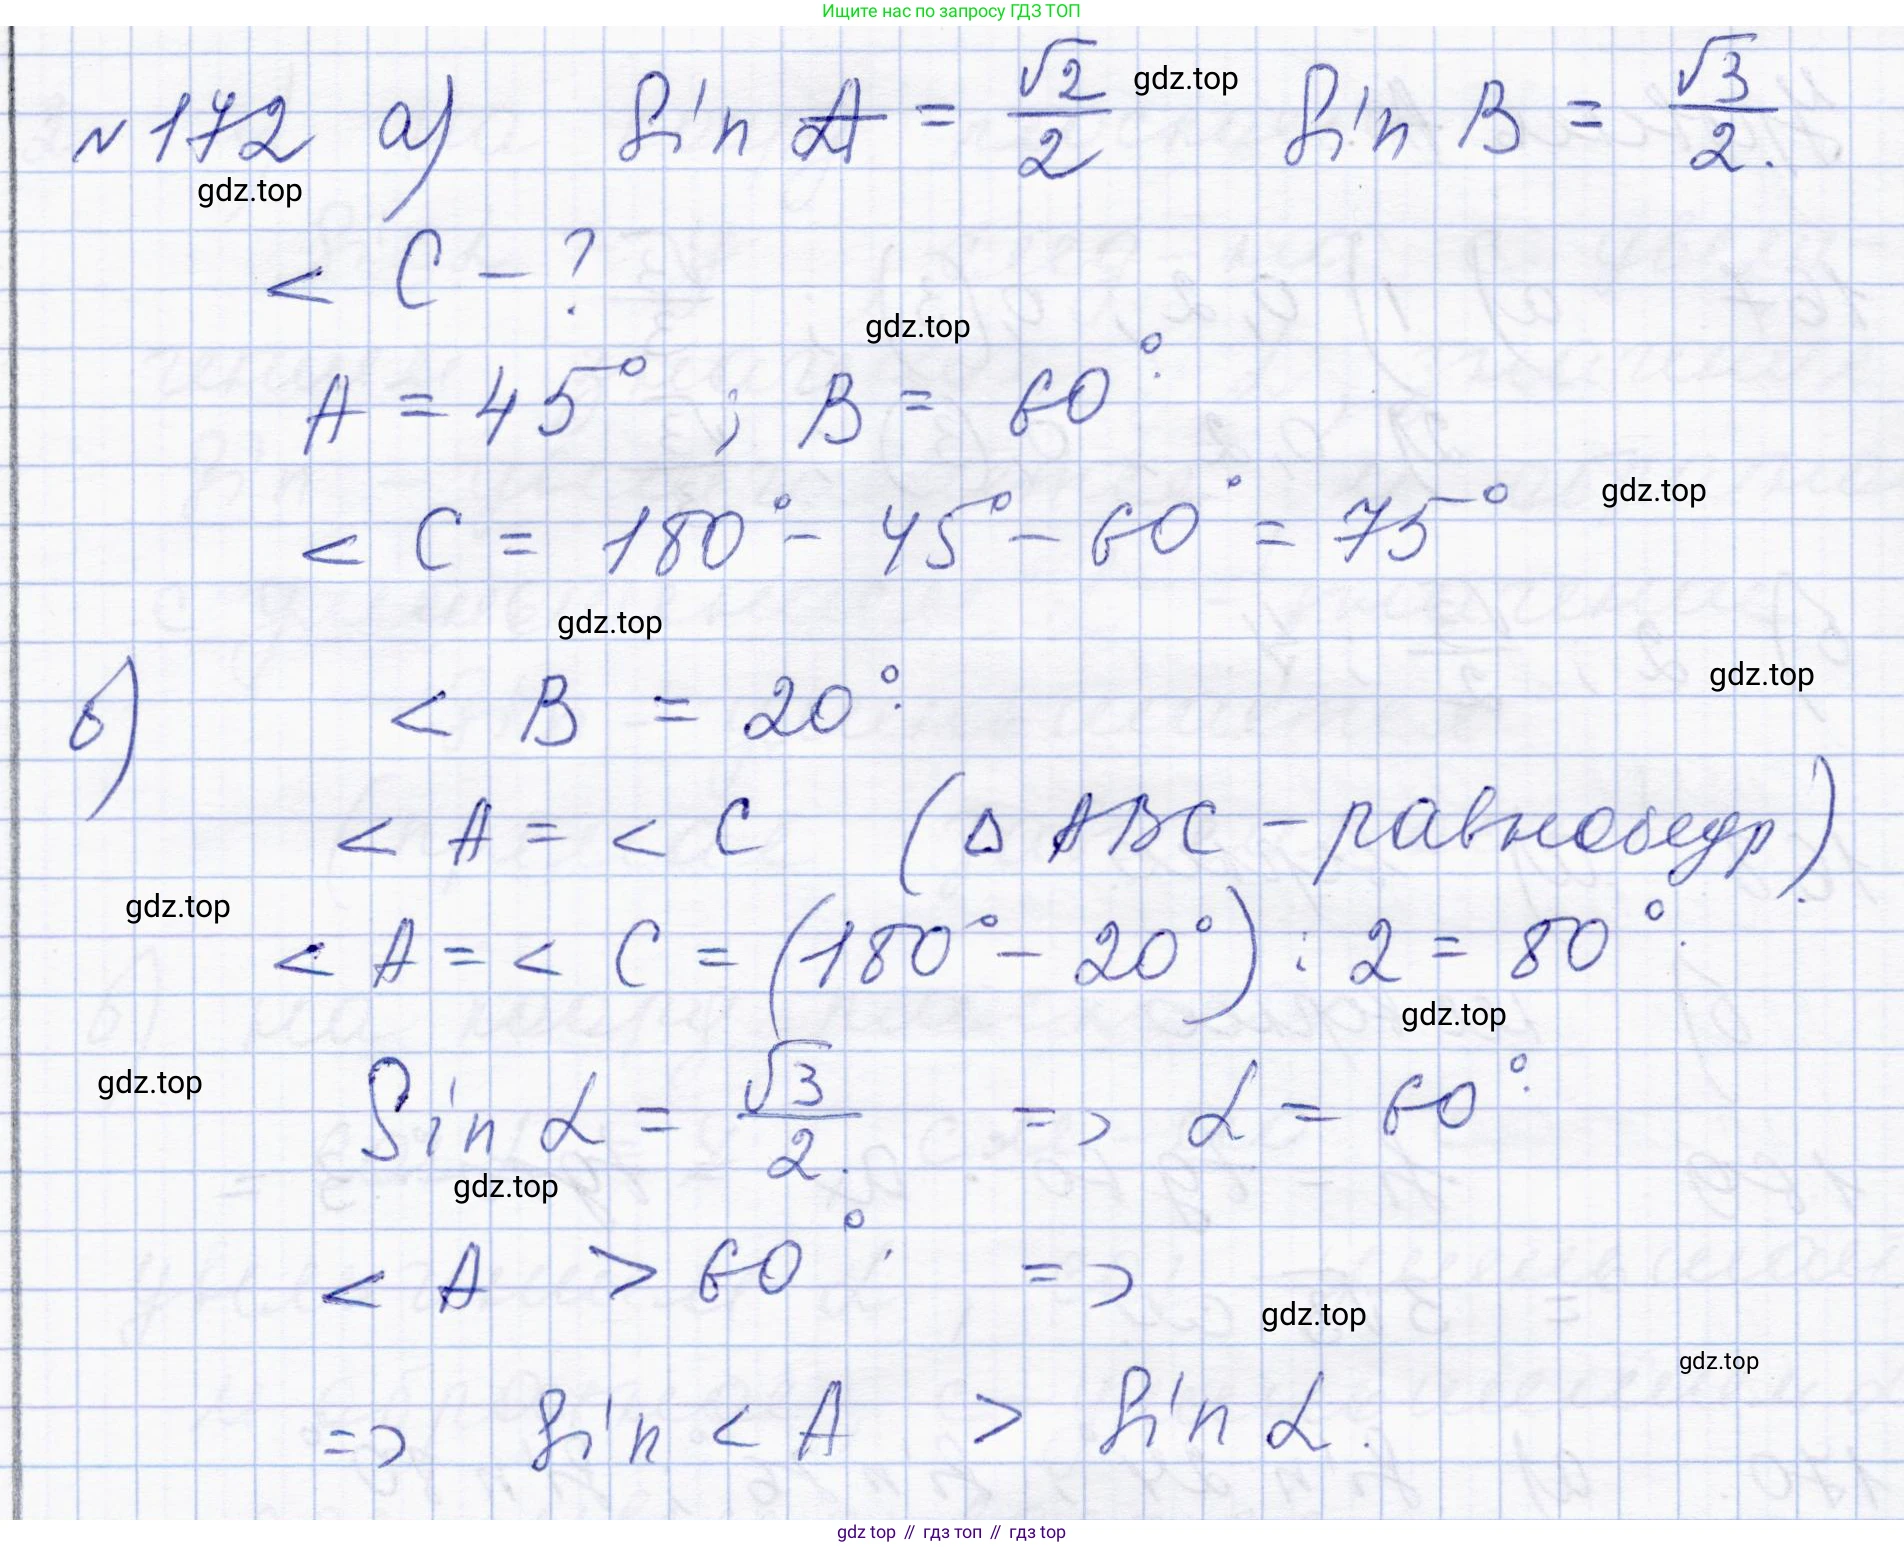 Ищите нас по запросу ГДЗ ТОП
№172 а) Sin A = √2/2 gdz.top Sin B = √3/2.
gdz.top
< C - ?
gdz.top
A = 45° ; B = 60°.
gdz.top
< C = 180° - 45° - 60° = 75°
gdz.top
gdz.top
б) < B = 20°.
< A = < C (△ ABC - равнобедр).
gdz.top
< A = < C = (180° - 20°) : 2 = 80°.
gdz.top
gdz.top
Sin α = √3/2. => α = 60°.
gdz.top
< A > 60°. =>
gdz.top
gdz.top
=> Sin < A > Sin α.
gdz top // гдз топ // гдз top